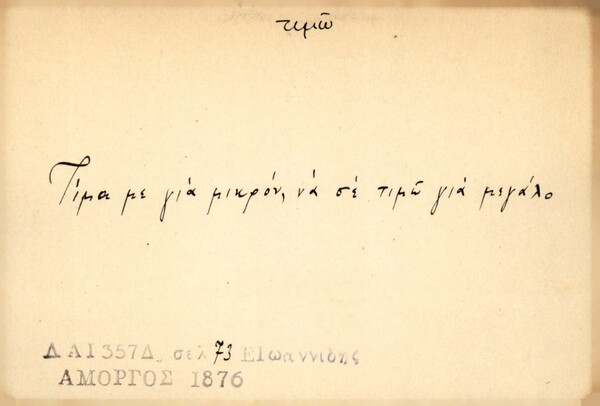 τιμῶ
Τίμα με γιά μικρόν, νά σέ τιμῶ γιά μεγάλο
ΛΑΙ357Δ, σελ 73 ΕΙωαννιδης
ΑΜΟΡΓΟΣ 1876